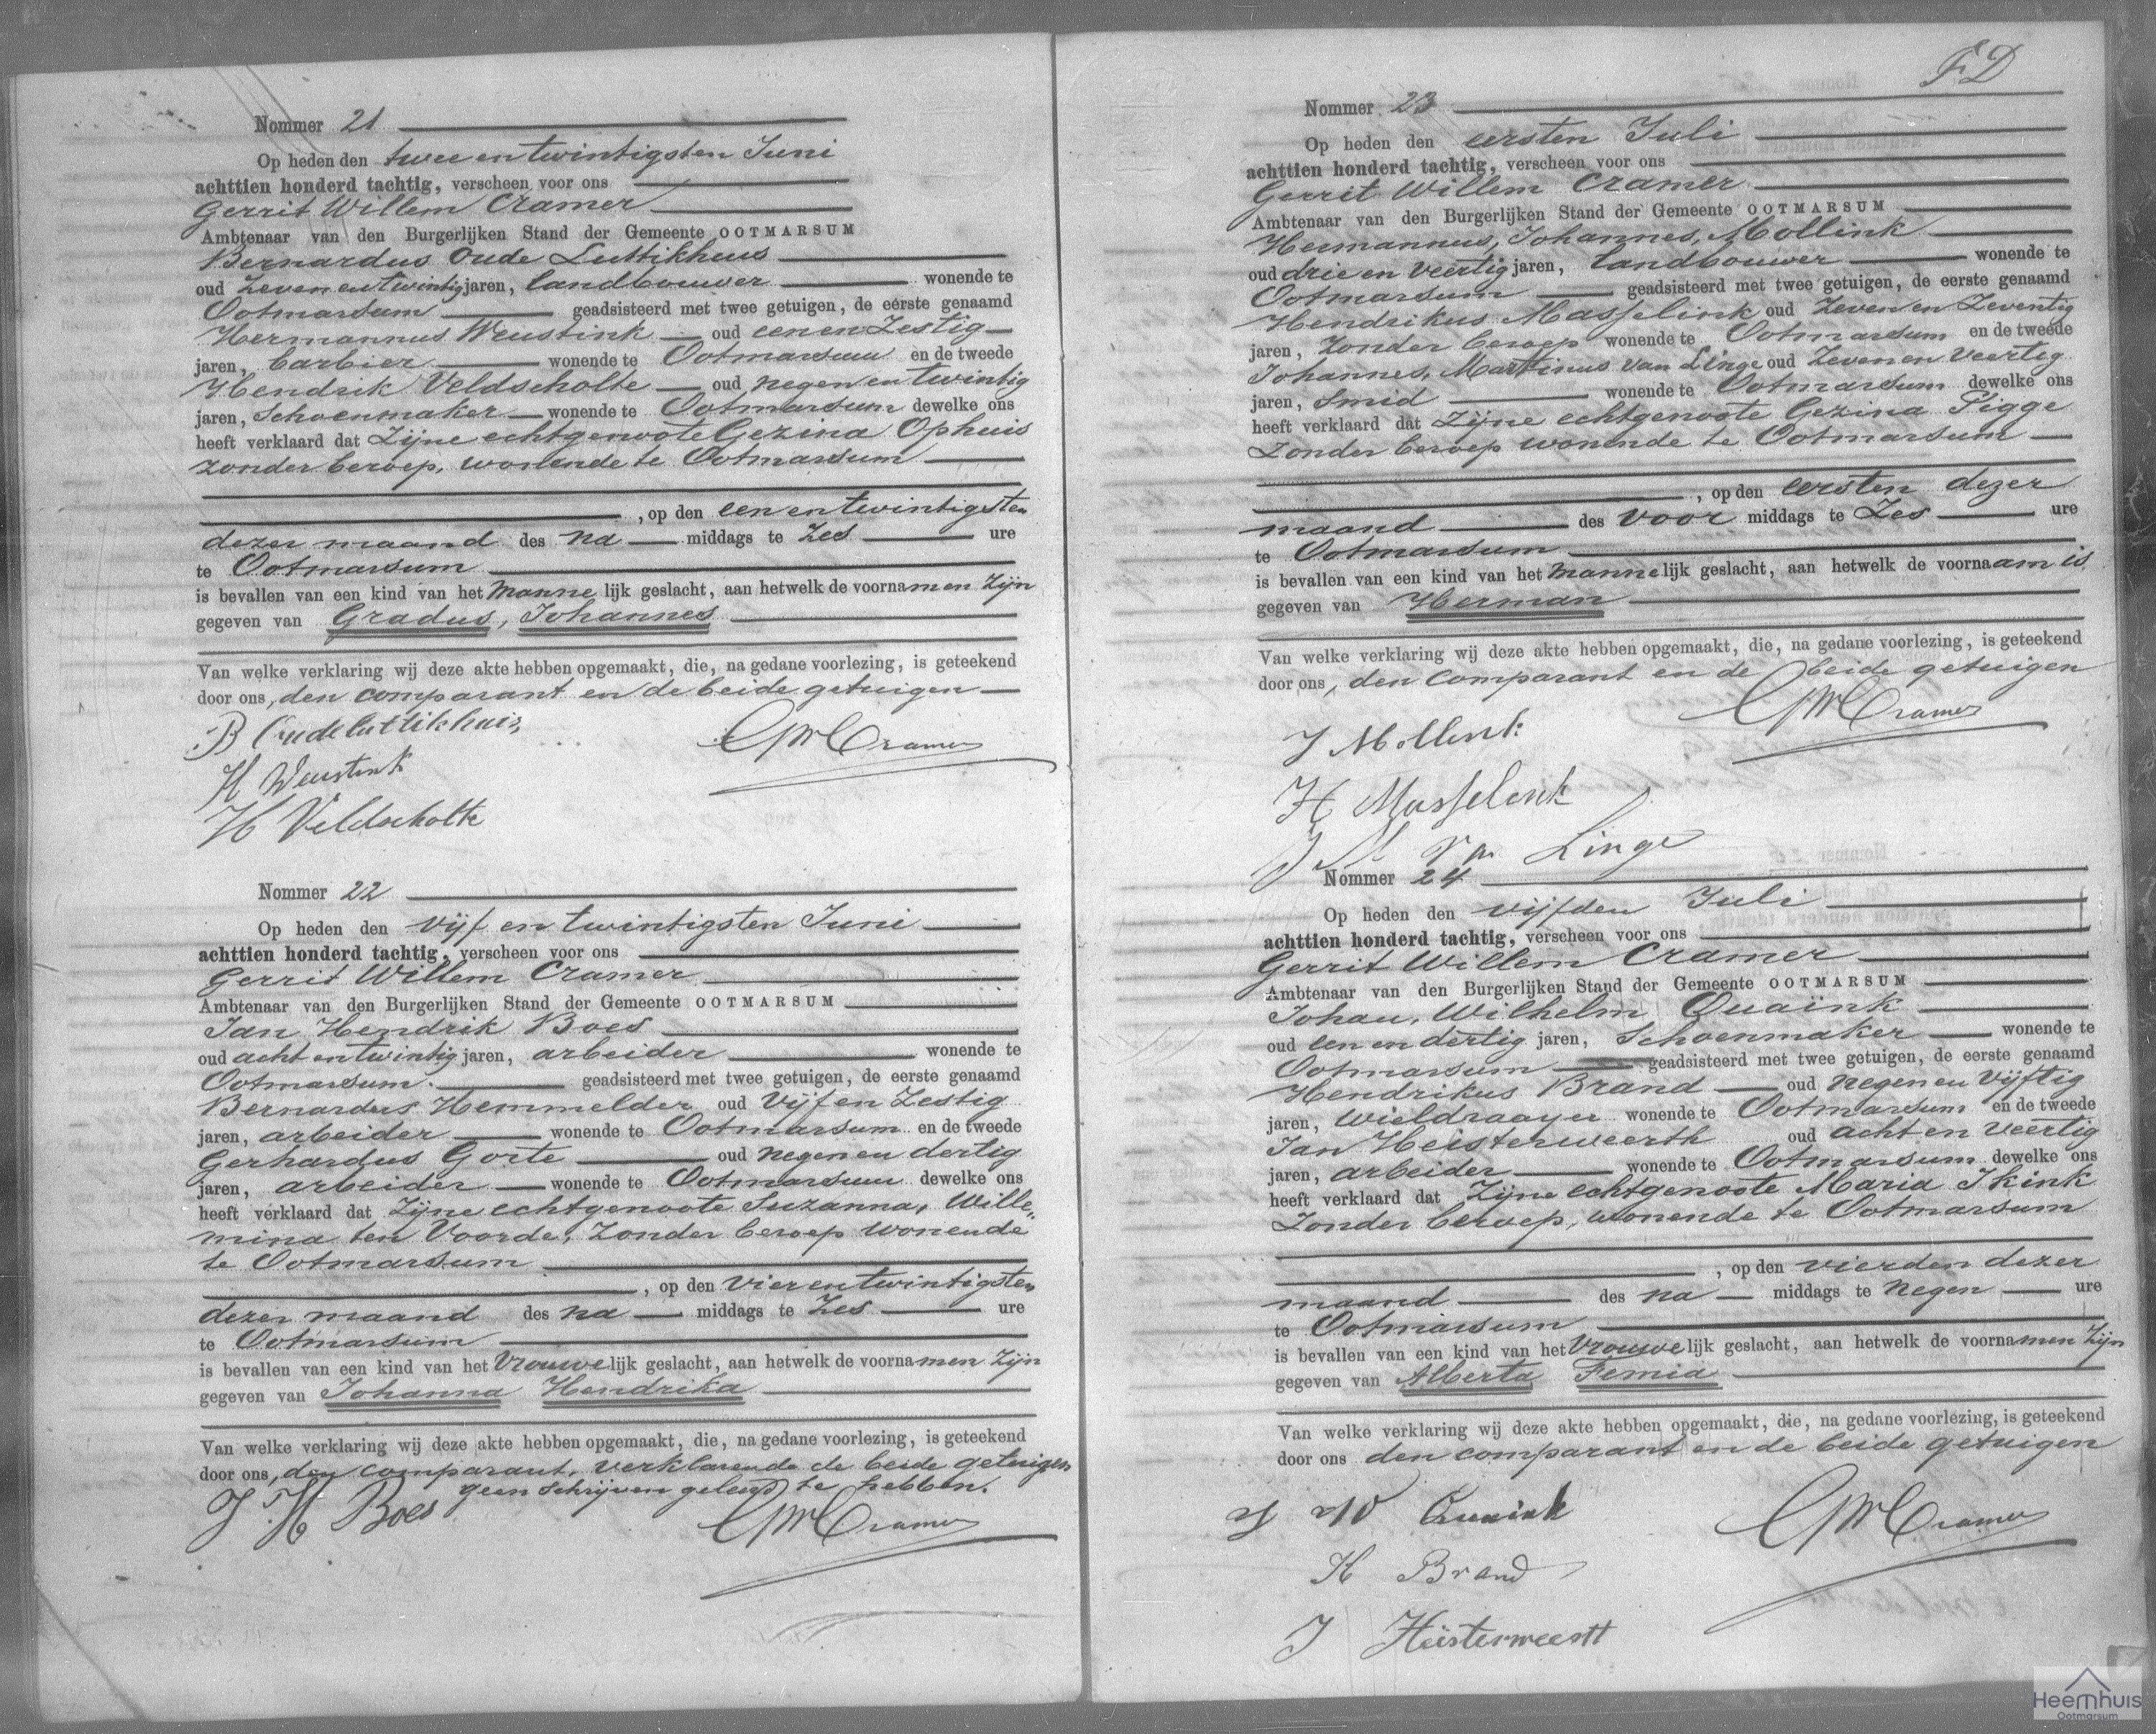 Nommer 21
Op heden den twee en twintigsten Juni
achttien honderd tachtig, verscheen voor ons
Gerrit Willem Cramer
Ambtenaar van den Burgerlijken Stand der Gemeente OOTMARSUM
Bernardus Oude Luttikhuis
oud Zeven en twintig jaren, landbouwer wonende te
Ootmarsum geadsisteerd met twee getuigen, de eerste genaamd
Hermannus Weustink oud een en Zestig
jaren, barbier wonende te Ootmarsum en de tweede
Hendrik Veldscholte oud negen en twintig
jaren, Schoenmaker wonende te Ootmarsum dewelke ons
heeft verklaard dat Zijne echtgenoote Gezina Ophuis
zonder beroep, wonende te Ootmarsum
, op den een en twintigsten
dezer maand des na middags te Zes ure
te Ootmarsum
is bevallen van een kind van het Mannelijk geslacht, aan hetwelk de voornamen Zijn
gegeven van Gradus, Johannes
Van welke verklaring wij deze akte hebben opgemaakt, die, na gedane voorlezing, is geteekend
door ons, den comparant en de beide getuigen
B Oudeluttikhuis
GWCramer
H Weustink
H Veldscholte
Nommer 22
Op heden den vijf en twintigsten Juni
achttien honderd tachtig, verscheen voor ons
Gerrit Willem Cramer
Ambtenaar van den Burgerlijken Stand der Gemeente OOTMARSUM
Jan Hendrik Boes
oud acht en twintig jaren, arbeider wonende te
Ootmarsum. geadsisteerd met twee getuigen, de eerste genaamd
Bernardus Hemmelder oud Vijf en Zestig
jaren, arbeider wonende te Ootmarsum en de tweede
Gerhardus Gorte oud negen en dertig
jaren, arbeider wonende te Ootmarsum dewelke ons
heeft verklaard dat Zijne echtgenoote Suzanna, Wille„
mina ten Voorde, Zonder beroep wonende
te Ootmarsum
, op den vier en twintigsten
dezer maand des na middags te Zes ure
te Ootmarsum
is bevallen van een kind van het Vrouwelijk geslacht, aan hetwelk de voornamen Zijn
gegeven van Johanna Hendrika
Van welke verklaring wij deze akte hebben opgemaakt, die, na gedane voorlezing, is geteekend
door ons, den comparant, verklarende de beide getuigen
geen schrijven geleerd te hebben.
J H Boes
GWCramer
FD
Nommer 23
Op heden den eersten Juli
achttien honderd tachtig, verscheen voor ons
Gerrit Willem Cramer
Ambtenaar van den Burgerlijken Stand der Gemeente OOTMARSUM
Hermannus, Johannes, Mollink
oud drie en veertig jaren, landbouwer wonende te
Ootmarsum geadsisteerd met twee getuigen, de eerste genaamd
Hendrikus Masselink oud Zeven en Zeventig
jaren, Zonder beroep wonende te Ootmarsum en de tweede
Johannes, Martinus van Linge oud Zeven en Veertig
jaren, Smid wonende te Ootmarsum dewelke ons
heeft verklaard dat Zijne echtgenoote Gezina Pigge
Zonder beroep wonende te Ootmarsum
, op den eersten dezer
maand des voor middags te Zes ure
te Ootmarsum
is bevallen van een kind van het Mannelijk geslacht, aan hetwelk de voornaam is
gegeven van Herman
Van welke verklaring wij deze akte hebben opgemaakt, die, na gedane voorlezing, is geteekend
door ons, den comparant en de beide getuigen
GWCramer
J Mollink
H Masselink
J M van Linge
Nommer 24
Op heden den vijfden Juli
achttien honderd tachtig, verscheen voor ons
Gerrit Willem Cramer
Ambtenaar van den Burgerlijken Stand der Gemeente OOTMARSUM
Johan, Wilhelm Quaink
oud een en dertig jaren, Schoenmaker wonende te
Ootmarsum geadsisteerd met twee getuigen, de eerste genaamd
Hendrikus Brand oud negen en Vijftig
jaren, Wieldraayer wonende te Ootmarsum en de tweede
Jan Heisterweerth oud acht en veertig
jaren, arbeider wonende te Ootmarsum dewelke ons
heeft verklaard dat Zijne echtgenoote Maria Ikink
Zonder beroep, wonende te Ootmarsum
, op den vierden dezer
maand des na middags te negen ure
te Ootmarsum
is bevallen van een kind van het Vrouwelijk geslacht, aan hetwelk de voornamen Zijn
gegeven van Alberta Femia
Van welke verklaring wij deze akte hebben opgemaakt, die, na gedane voorlezing, is geteekend
door ons den comparant en de beide getuigen
J W Quaink
GWCramer
H Brand
J Heisterweertt
Heemhuis
Ootmarsum